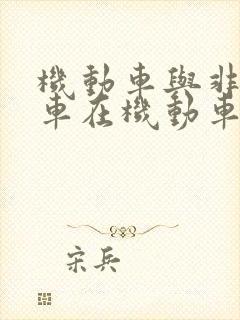 機動車與非
車在機動車
宋兵